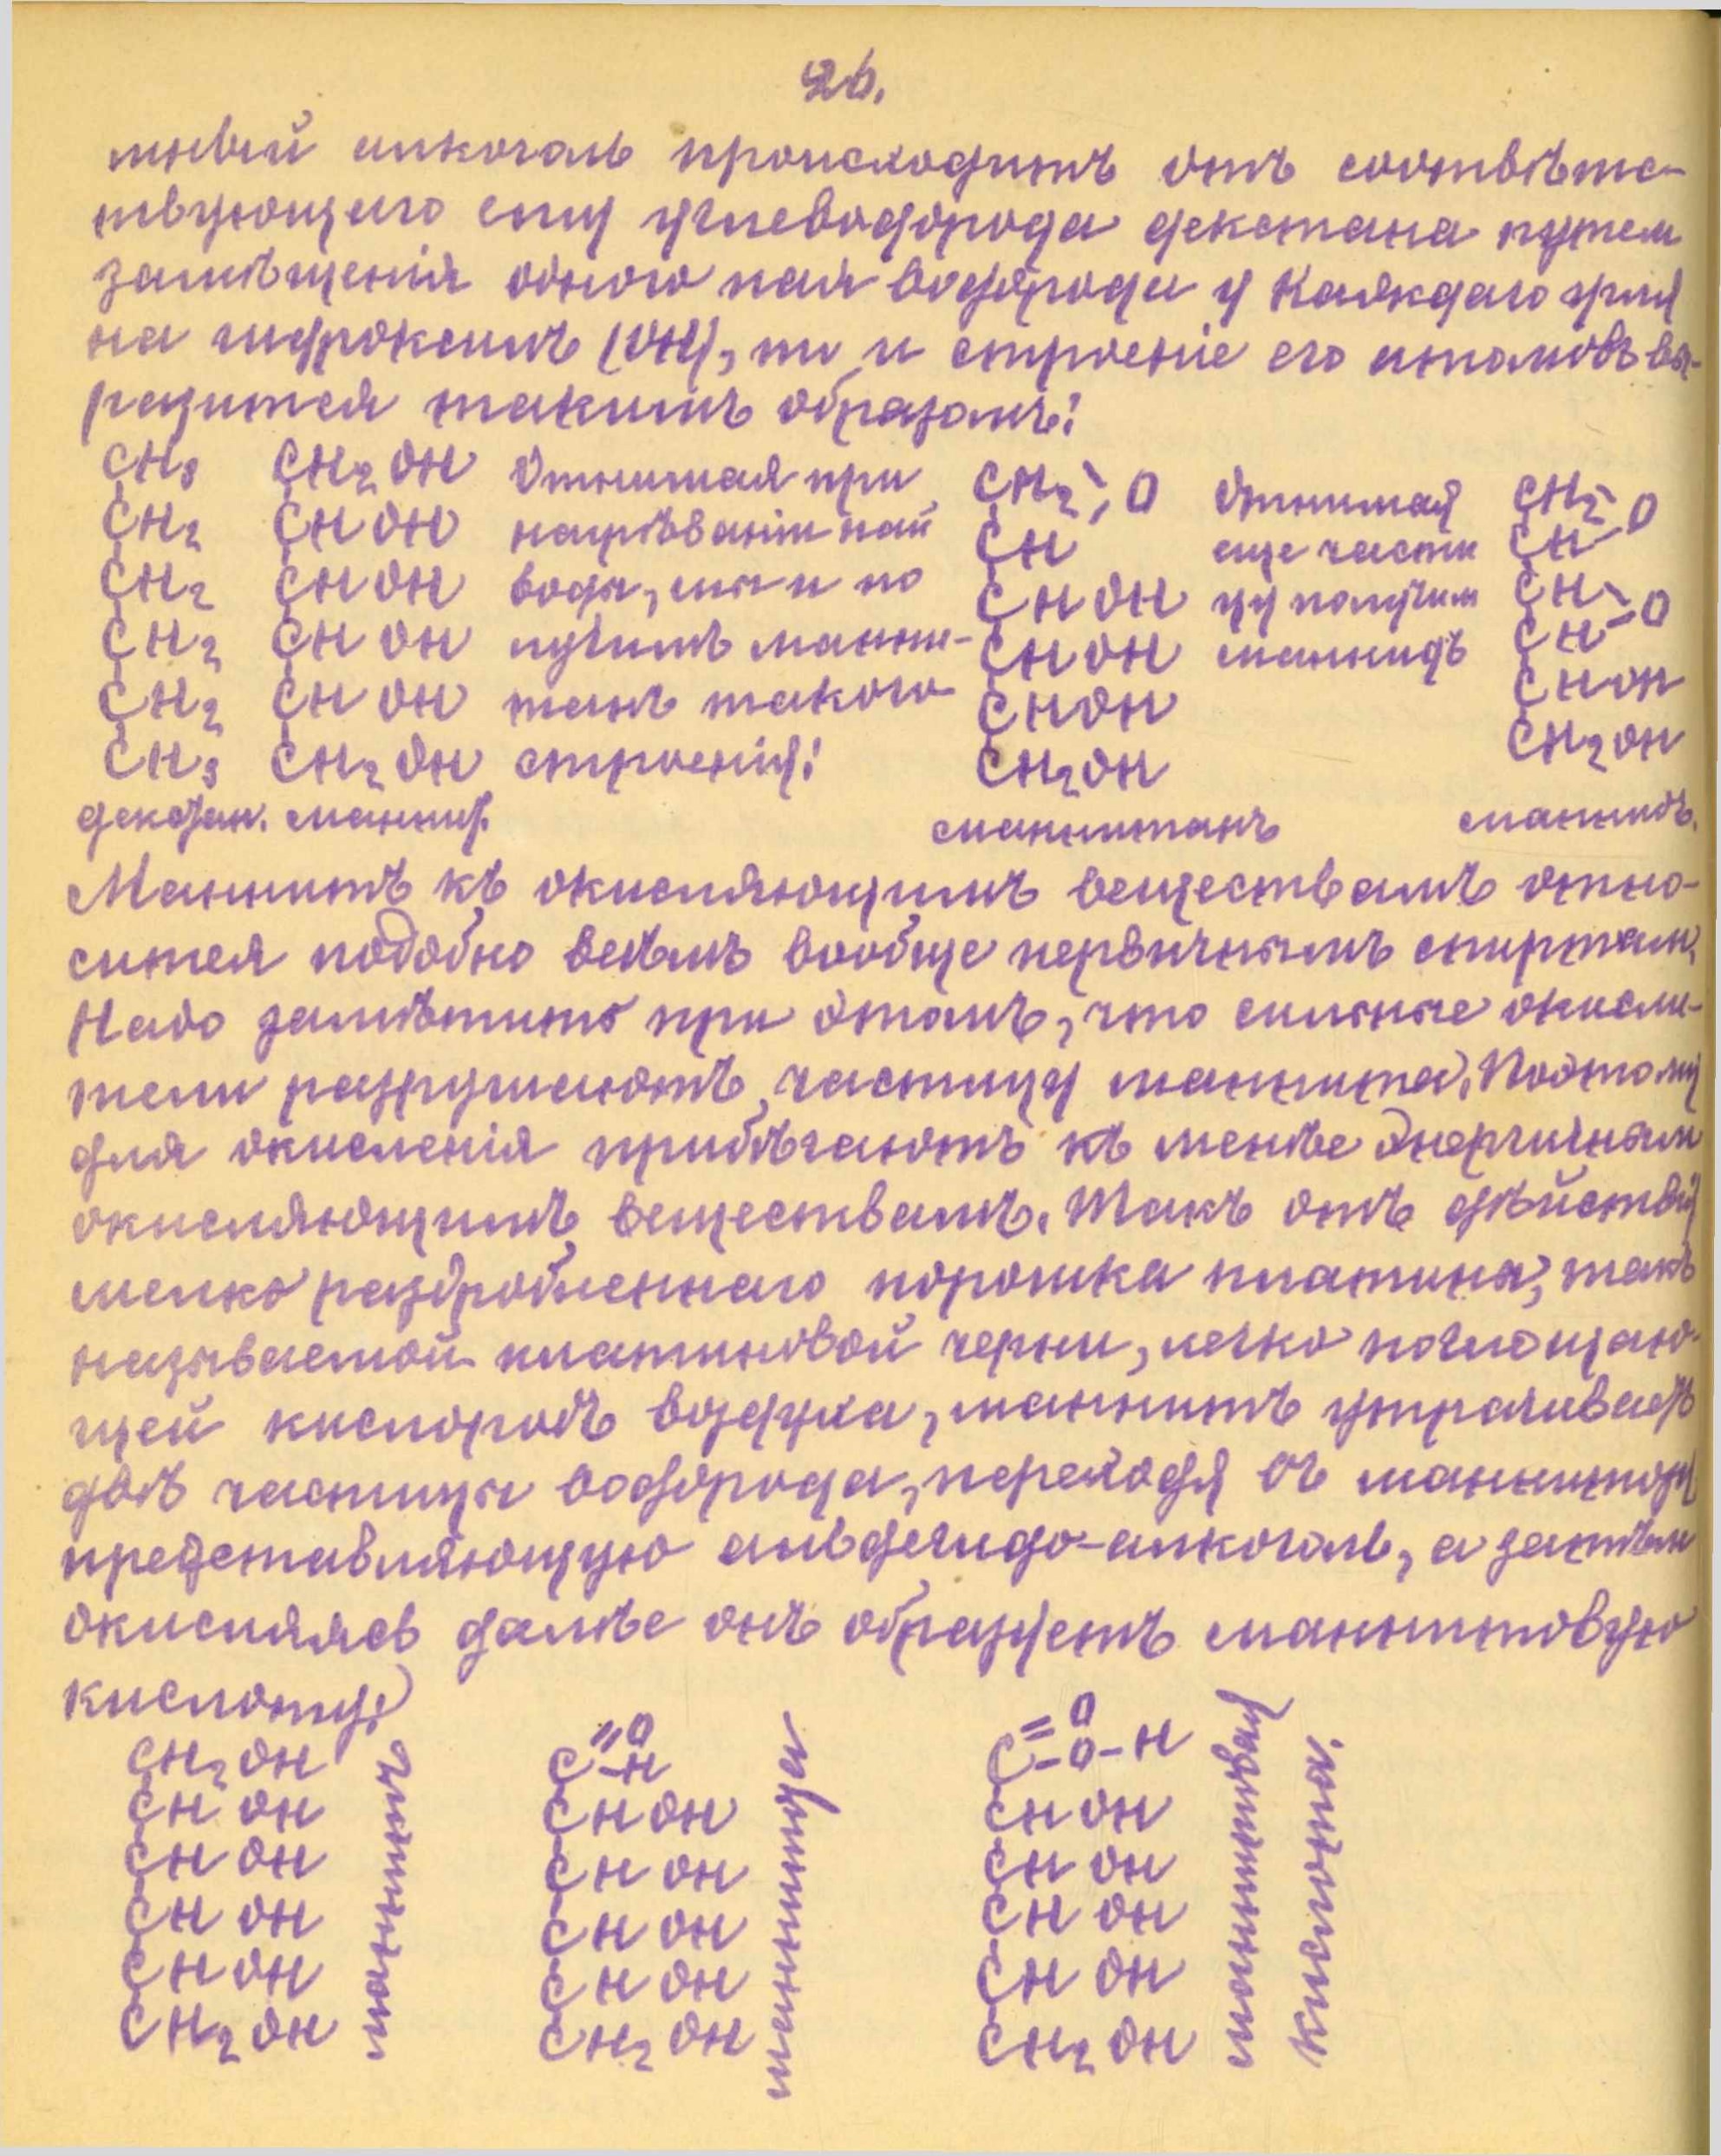 26.
тный алкоголь происходитъ отъ соотвѣтс-
твующаго ему углеводорода декстана путем
замѣщенія одного пая водорода у Каждаго угля
на гидроксилъ (ОН), то и строеніе его атомовъ вы-
разится такимъ образомъ:
CH3 CH2OH Отнимая при CH2 O Отнимая CH2 O
CH2 CHOH нагрѣваніи пай CH еще части CH
CH2 CHOH воды, мы и по CHOH цу получим CH O
CH2 CHOH лучимъ манни- CHOH маннидъ CH
CH2 CHOH танъ такого CHOH CHOH
CH3 CH2OH строенія: CH2OH CH2OH
маннитанъ маннидъ.
Маннитъ къ окисляющимъ веществамъ отно-
сится подобно всѣмъ вообще первичнымъ спиртам.
Надо замѣтить при этомъ, что сильные окисли-
тели разрушаютъ частицу маннита. Поэтому
для окисленія прибѣгаютъ къ менѣе энергичным
окисляющимъ веществамъ. Такъ отъ дѣйствія
мелко раздробленнаго порошка платины, такъ
называемой платиновой черни, легко поглощаю-
щей кислородъ воздуха, маннитъ утрачиваетъ
двѣ частицы водорода, переходя въ маннитозу
представляющую альдегидо-алкоголь, а затѣм
окисляясь далѣе онъ образуетъ маннитовую
кислоту:
CH2OH C=O-H C=O-O-H
CHOH CHOH CHOH
CHOH CHOH CHOH
CHOH CHOH CHOH
CHOH CHOH CHOH
CH2OH CH2OH CH2OH
маннитъ
маннитоза
маннитовая
кислота.